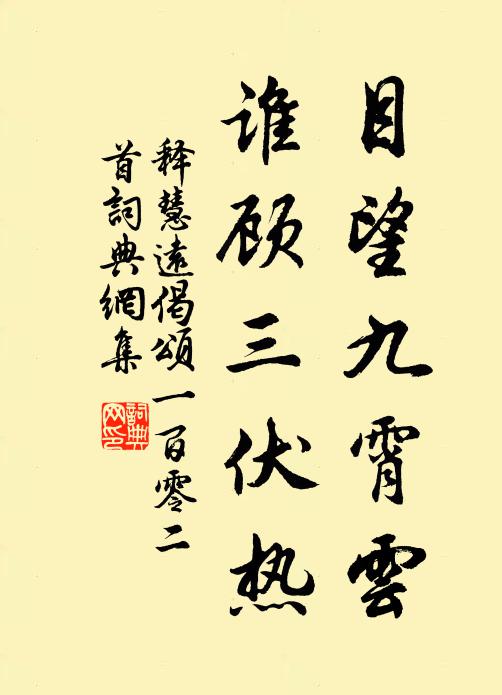 目望九霄雲
谁顾三伏热
释慧遠偈頌一百零二
首詞典網集
詞典
网印